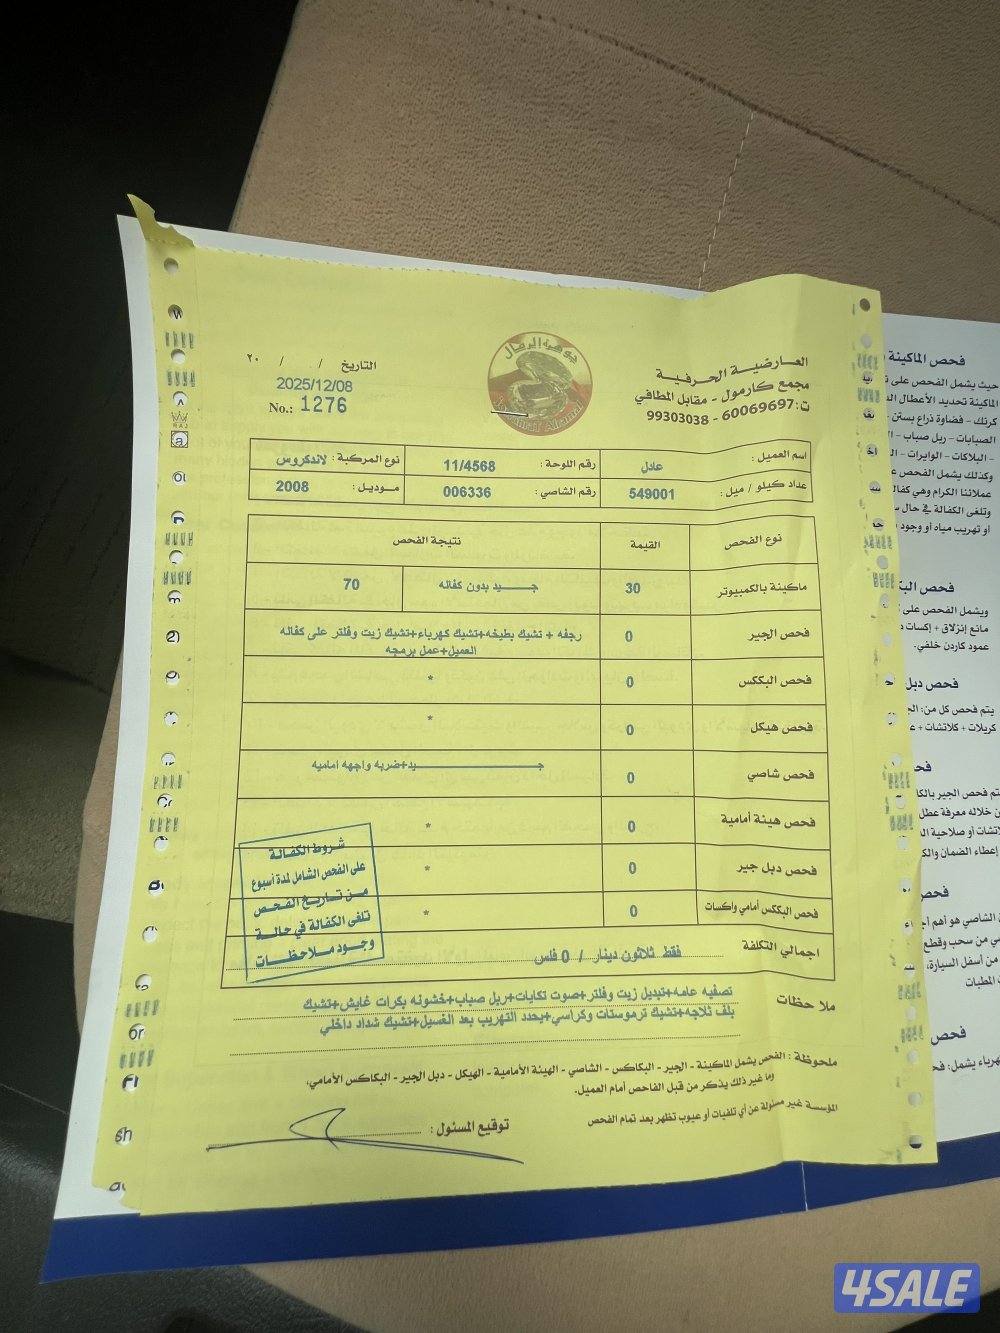 العارضية الحرفية
مجمع كارمول - مقابل المطافي
ت: 60069697 - 99303038
جوهرة الرمال
التاريخ / / ٢٠
2025/12/08
No.: 1276
اسم العميل : عادل رقم اللوحة : 11/4568 نوع المركبة : لاندكروس
عداد كيلو / ميل : 549001 رقم الشاصي : 006336 موديل : 2008
نوع الفحص القيمة نتيجة الفحص
ماكينة بالكمبيوتر 30 جـــيد بدون كفاله 70
فحص الجير 0 رجفه + تشيك بطيخه+تشيك كهرباء+تشيك زيت وفلتر على كفاله
العميل+عمل برمجه
فحص البككس 0 *
فحص هيكل 0 *
فحص شاصي 0 جـــــــــيد+ضربه واجهه اماميه
فحص هيئة أمامية 0 *
فحص دبل جير 0 *
فحص البككس أمامي واكسات 0 *
اجمالي التكلفة فقط ثلاثون دينار / 0 فلس
شروط الكفالة
على الفحص الشامل لمدة أسبوع
من تاريخ الفحص
تلغى الكفالة في حالة
وجود ملاحظات
ملاحظات تصفيه عامه+تبديل زيت وفلتر+صوت تكايات+ربل صباب+خشونه بكرات غايش+تشيك
بلف ثلاجه+تشيك ترموستات وكراسي+يحدد التهريب بعد الغسيل+تشيك شداد داخلي
ملحوظة : الفحص يشمل الماكينة - الجير - البكاكس - الشاصي - الهيئة الأمامية - الهيكل - دبل الجير - البكاكس الأمامي،
وما غير ذلك يذكر من قبل الفاحص أمام العميل.
المؤسسة غير مسئولة عن أي تلفيات أو عيوب تظهر بعد تمام الفحص
توقيع المسئول :
فحص الماكينة
حيث يشمل الفحص على
الماكينة تحديد الأعطال
كرنك - فضاوة ذراع بستن -
الصبابات - ريل صباب -
- البلاكات - الوايرات -
وكذلك يشمل الفحص
عملائنا الكرام وهي
وتلغى الكفالة في حال
أو تهريب مياه أو وجود
فحص
ويشمل الفحص على
مانع إنزلاق + إكسات
عمود كاردن خلفي.
فحص دبل
يتم فحص كل من:
كريلات + كلاتشات +
يتم فحص الجير
خلاله معرفة عطل
أو صلاحية
إعطاء الضمان
فحص
الشاصي هو أهم
من سحب وقطع
من أسفل السيارة،
المطبات
فحص
يشمل:
4SALE